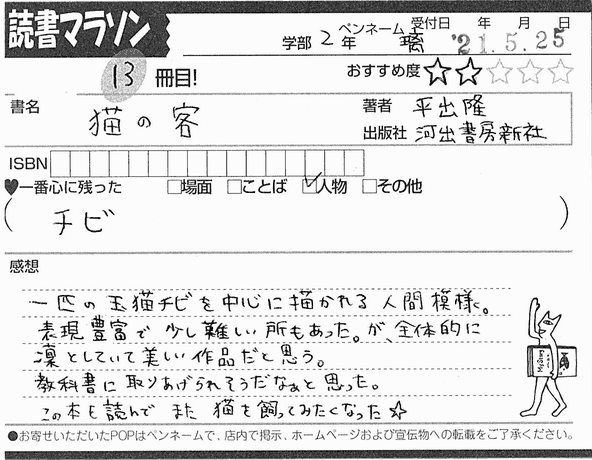 読書マラソン
学部 2年 ペンネーム 璃 受付日 年 月 日
'21.5.25
13 冊目!
おすすめ度 ☆☆☆☆☆
書名 猫の客
著者 平出隆
出版社 河出書房新社
ISBN
♥一番心に残った □場面 □ことば ☑人物 □その他
( チビ )
感想
一匹の玉猫チビを中心に描かれる人間模様。
表現豊富で少し難しい所もあった。が、全体的に
凛としていて美しい作品だと思う。
教科書に取りあげられそうだなぁと思った。
この本を読んで また 猫を飼ってみたくなった☆
●お寄せいただいたPOPはペンネームで、店内で掲示、ホームページおよび宣伝物への転載をご了承ください。